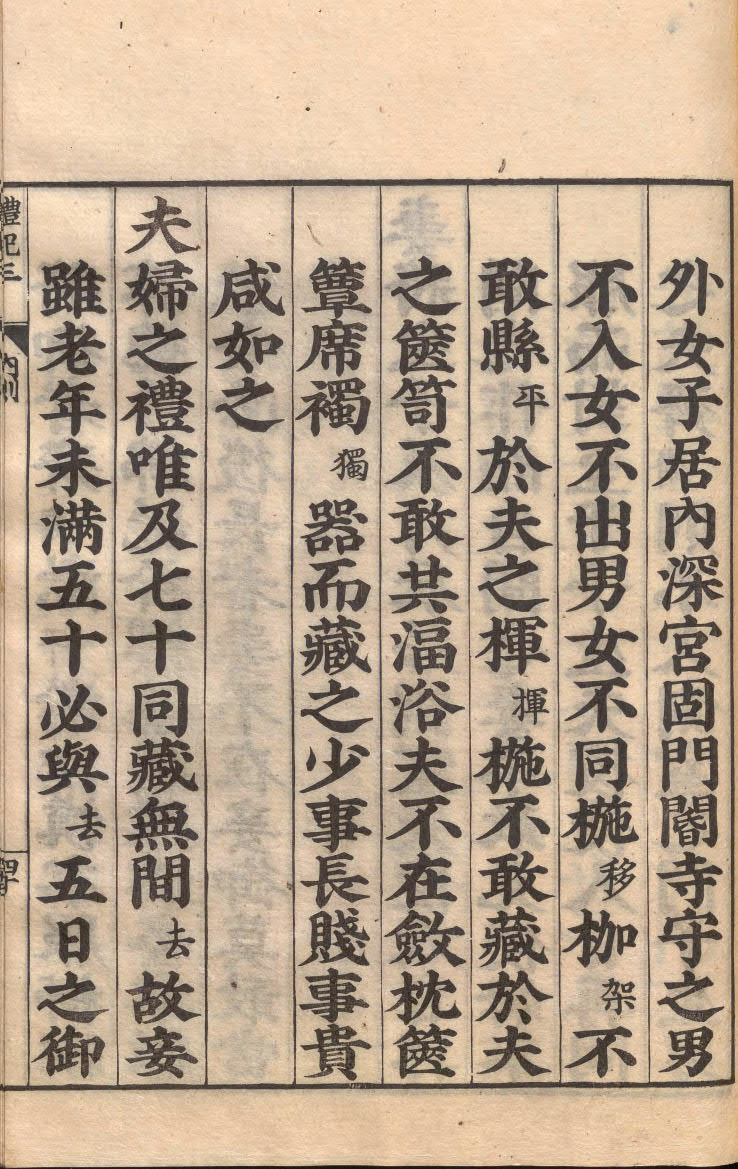 外女子居內深宮固門閽寺守之男
不入女不出男女不同椸移枷架不
敢縣平於夫之楎揮椸不敢藏於夫
之篋笥不敢共湢浴夫不在斂枕篋
簟席襡獨器而藏之少事長賤事貴
咸如之
夫婦之禮唯及七十同藏無間去故妾
雖老年未滿五十必與去五日之御
禮記三